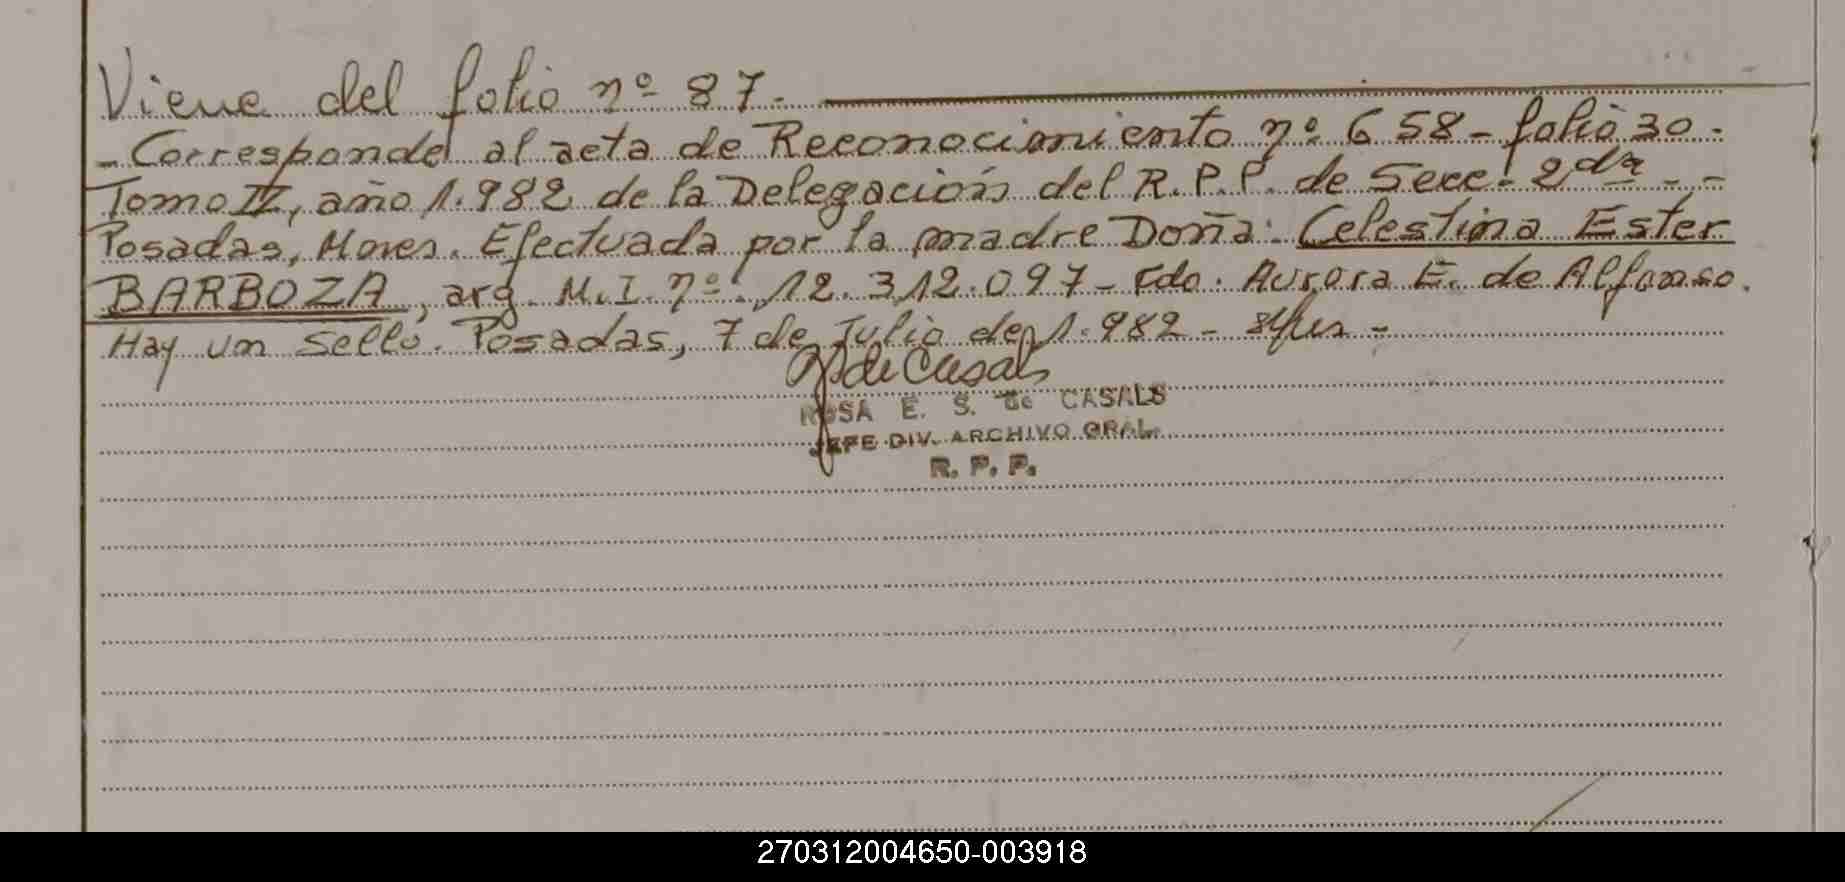 Viene del folio nº 87.
- Corresponde al acta de Reconocimiento nº 658 - folio 30 -
Tomo II, año 1.982 de la Delegación del R.P.P. de Secc. 2da - -
Posadas, Mnes. Efectuada por la madre Doña: Celestina Ester
BARBOZA, arg. M.I. nº: 12.312.097 - Fdo. Aurora E. de Alfonso.
Hay un sello. Posadas, 7 de Julio de 1.982 -
de Casals
ROSA E. S. de CASALS
JEFE DIV. ARCHIVO GRAL.
R. P. P.
270312004650-003918